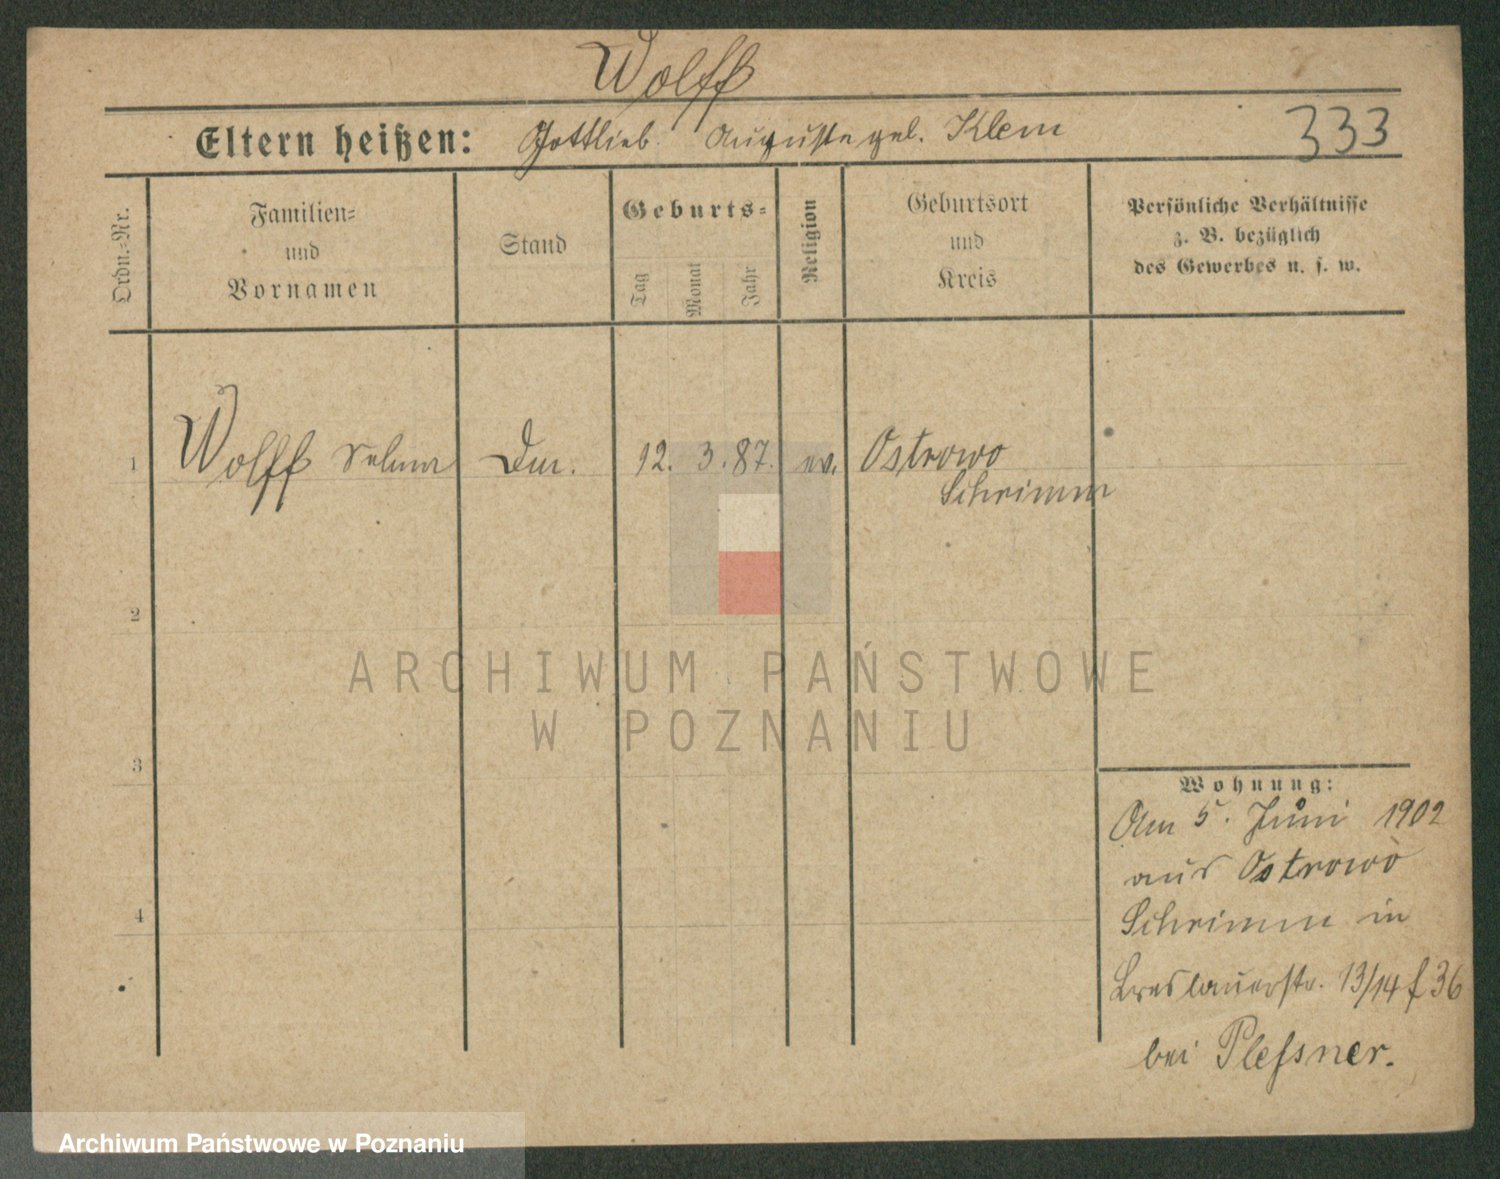 Wolff
Eltern heißen: Gottlieb. Auguste geb. Klem
333
Ordn.-Nr.
Familien-
und
Vornamen
Stand
Geburts-
Tag
Monat
Jahr
Religion
Geburtsort
und
Kreis
Persönliche Verhältnisse
z. B. bezüglich
des Gewerbes u. s. w.
1 Wolff Selma 12. 3. 87. ev. Ostrowo
Schrimm
2
ARCHIWUM PAŃSTWOWE
W POZNANIU
3
4
Wohnung:
Am 5. Juni 1902
aus Ostrowo
Schrimm in
Breslauerstr. 13/14 f 36
bei Plessner.
Archiwum Państwowe w Poznaniu